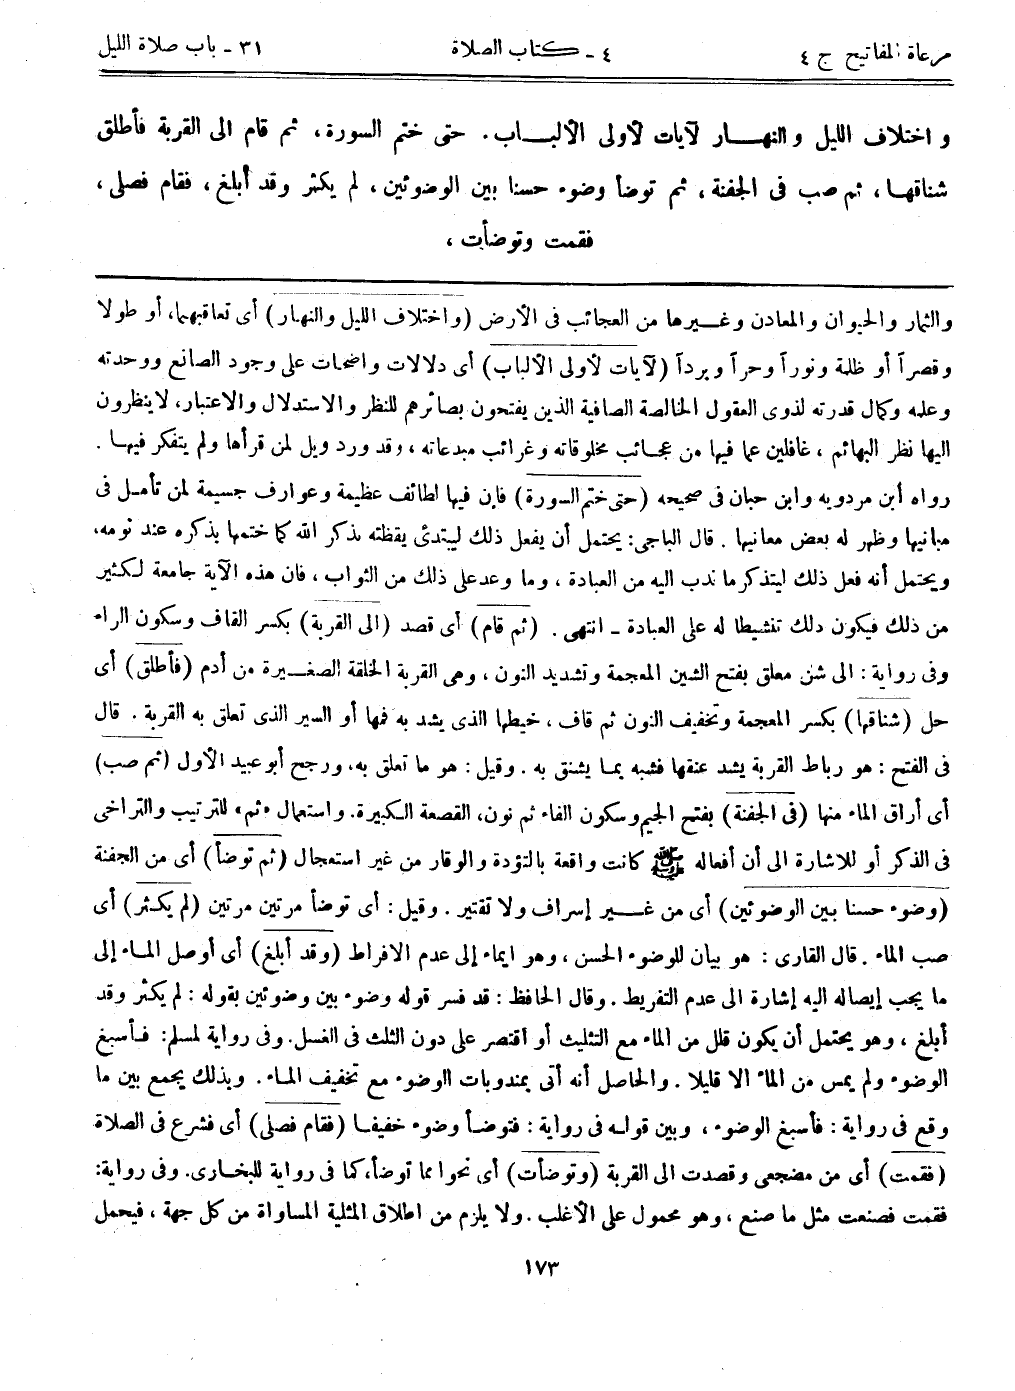 مرعاة المفاتيح ج ٤ ٤ ـ كتاب الصلاة ٣١ ـ باب صلاة الليل
و اختلاف الليل و النهــــار لآيات لأولى الألبـــاب. حتى ختم السورة، ثم قام الى القربة فأطلق
شناقهــا، ثم صب فى الجفنة، ثم توضأ وضوء حسنا بين الوضوئين، لم يكثر وقد أبلغ، فقام فصلى،
فقمت وتوضأت،
والثمار والحيوان والمعادن وغــيرها من العجائب فى الأرض (واختلاف الليل والنهار) أى تعاقبهما، أو طولا
وقصراً أو ظلمة ونوراً وحراً وبرداً (لآيات لأولى الألباب) أى دلالات واضحات على وجود الصانع ووحدته
وعلمه وكمال قدرته لذوى العقول الخالصة الصافية الذين يفتحون بصائرهم للنظر والاستدلال والاعتبار، لا ينظرون
اليها نظر البهائم، غافلين عما فيها من عجـائب مخلوقاته وغرائب مبدعاته، وقد ورد ويل لمن قرأها ولم يتفكر فيهـا.
رواه أبن مردويه وابن حبان فى صحيحه (حتى ختم السورة) فإن فيها لطائف عظيمة وعوارف جسيمة لمن تأمـل فى
مبانيها وظهر له بعض معانيها. قال الباجى: يحتمل أن يفعل ذلك ليبتدئ يقظته بذكر الله كما ختمها بذكره عند نومه،
ويحتمل أنه فعل ذلك ليتذكر ما ندب اليه من العبادة، وما وعد على ذلك من الثواب، فان هذه الآية جامعة لـكثير
من ذلك فيكون دلك تنشيطا له على العبادة ـ انتهى. (ثم قام) أى قصد (الى القربة) بكسر القاف وسكون الراء
وفى رواية: الى شن معلق بفتح الشين المعجمة وتشديد النون، وهى القربة الخلقة الصغــيرة من أدم (فأطلق) أى
حل (شناقها) بكسر المعجمة وتخفيف النون ثم قاف، خيطها الذى يشد به فمها أو السير الذى تعلق به القربة. قال
فى الفتح: هو رباط القربة يشد عنقها فشبه بمـا يشنق به. وقيل: هو ما تعلق به، ورجح أبو عبيد الأول (ثم صب)
أى أراق الماء منها (فى الجفنة) بفتح الجيم وسكون الفاء ثم نون، القصعة الـكبيرة. واستعمال «ثم» للترتيب والتراخى
فى الذكر أو للاشارة الى أن أفعاله ﷺ كانت واقعة بالتؤدة والوقار من غير استعجال (ثم توضأ) أى من الجفنة
(وضوء حسنا بين الوضوئين) أى من غــير إسراف ولا تقتير. وقيل: أى توضأ مرتين مرتين (لم يكـثر) أى
صب الماء. قال القارى: هو بيان للوضوء الحسن، وهو ايماء إلى عدم الافراط (وقد أبلغ) أى أوصل المـاء إلى
ما يجب إيصاله اليه إشارة الى عدم التفريط. وقال الحافظ: قد فسر قوله وضوء بين وضوئين بقوله: لم يكثر وقد
أبلغ، وهو يحتمل أن يكون قلل من الماء مع التثليث أو اقتصر على دون الثلث فى الغسل. وفى رواية لمسلم: فـأسبغ
الوضوء ولم يمس من الماء الا قليلا. والحاصل أنه أتى بمندوبات الوضوء مع تخفيف المـاء. وبذلك يجمع بين ما
وقع فى رواية: فأسبغ الوضوء، وبين قولـه فى رواية: فتوضـأ وضوء خفيفـا (فقام فصلى) أى فشرع فى الصلاة
(فقمت) أى من مضجعى وقصدت الى القربة (وتوضأت) أى نحوا مما توضأ، كما فى رواية للبخارى. وفى رواية:
فقمت فصنعت مثل ما صنع، وهو محمول على الأغلب. ولا يلزم من اطلاق المثلية المساواة من كل جهة، فيحمل
١٧٣